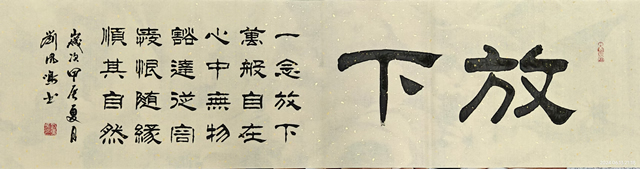 放下
一念放下
萬般自在
心中無物
豁達從容
愛恨隨緣
順其自然
歲次甲辰夏月
劉書